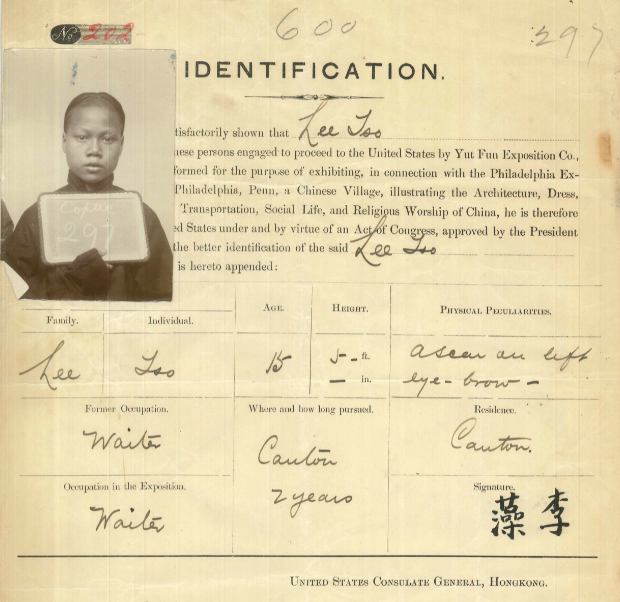 No 202
600
297
IDENTIFICATION.
tisfactorily shown that Lee Tso
nese persons engaged to proceed to the United States by Yut Fun Exposition Co.,
formed for the purpose of exhibiting, in connection with the Philadelphia Ex-
Philadelphia, Penn, a Chinese Village, illustrating the Architecture, Dress,
Transportation, Social Life, and Religious Worship of China, he is therefore
ed States under and by virtue of an Act of Congress, approved by the President
the better identification of the said Lee Tso
is hereto appended:
297
Family. Individual. AGE. HEIGHT. PHYSICAL PECULIARITIES.
Lee Tso 15 5 - ft. a scar on left
— in. eye-brow -
Former Occupation. Where and how long pursued. Residence.
Waiter Canton Canton.
Occupation in the Exposition. 2 years Signature.
Waiter 李藻
UNITED STATES CONSULATE GENERAL, HONGKONG.